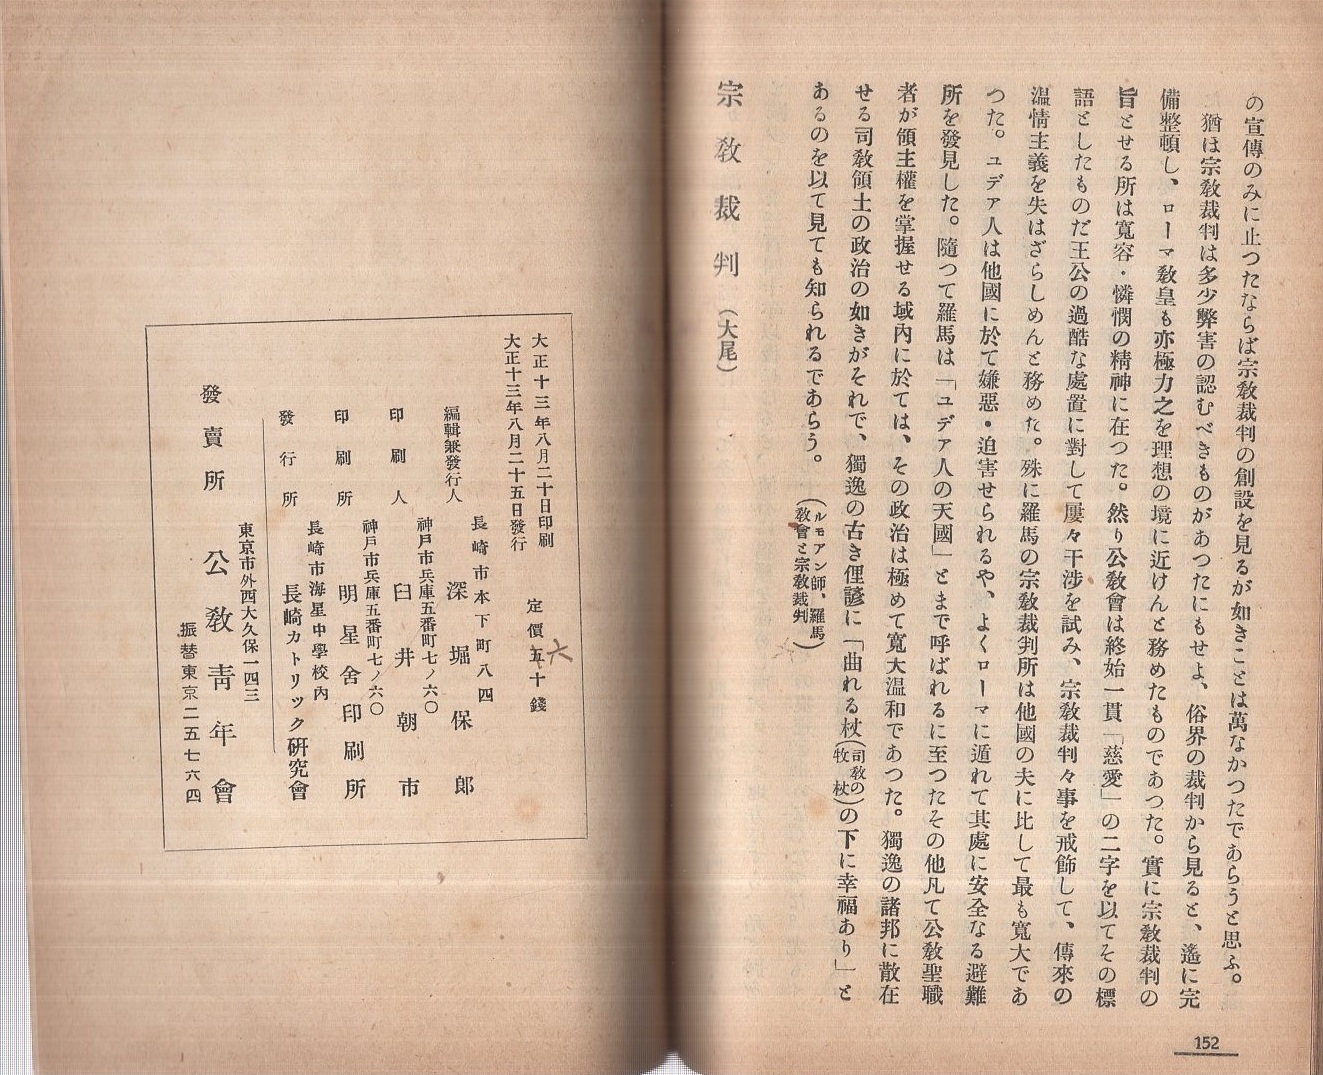 の宣傳のみに止つたならば宗敎裁判の創設を見るが如きことは萬なかつたであらうと思ふ。
猶は宗敎裁判は多少弊害の認むべきものがあつたにもせよ、俗界の裁判から見ると、遙に完
備整頓し、ローマ敎皇も亦極力之を理想の境に近けんと務めたものであつた。實に宗敎裁判の
旨とせる所は寬容・憐憫の精神に在つた。然り公敎會は終始一貫「慈愛」の二字を以てその標
語としたものだ王公の過酷な處置に對して屢々干涉を試み、宗敎裁判々事を戒飾して、傳來の
溫情主義を失はざらしめんと務めた。殊に羅馬の宗敎裁判所は他國の夫に比して最も寬大であ
つた。ユデア人は他國に於て嫌惡・迫害せられるや、よくローマに遁れて其處に安全なる避難
所を發見した。隨つて羅馬は「ユデア人の天國」とまで呼ばれるに至つたその他凡て公敎聖職
者が領主權を掌握せる域內に於ては、その政治は極めて寬大溫和であつた。獨逸の諸邦に散在
せる司敎領土の政治の如きがそれで、獨逸の古き俚諺に「曲れる杖(司敎の牧杖)の下に幸福あり」と
あるのを以て見ても知られるであらう。
(ルモアン師、羅馬
敎會と宗敎裁判)
宗敎裁判(大尾)
152
大正十三年八月二十日印刷
大正十三年八月二十五日發行
定價五十錢
六
長崎市本下町八四
編輯兼發行人 深堀保郎
神戶市兵庫五番町七ノ六〇
印刷人 臼井朝市
神戶市兵庫五番町七ノ六〇
印刷所 明星舍印刷所
長崎市海星中學校內
發行所 長崎カトリック硏究會
東京市外西大久保一四三
發賣所 公敎靑年會
振替東京二五七六四